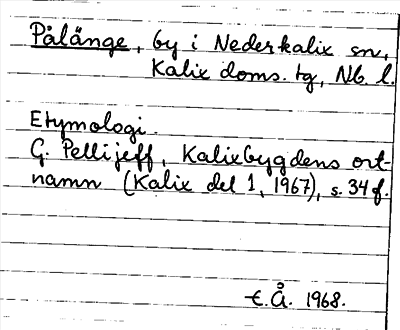 Pålänge, by i Nederkalix sn,
Kalix doms. tg, Nb. l.
Etymologi.
G. Pellijeff, Kalixbygdens ort-
namn (Kalix del 1, 1967), s. 34 f.
E.Å. 1968.